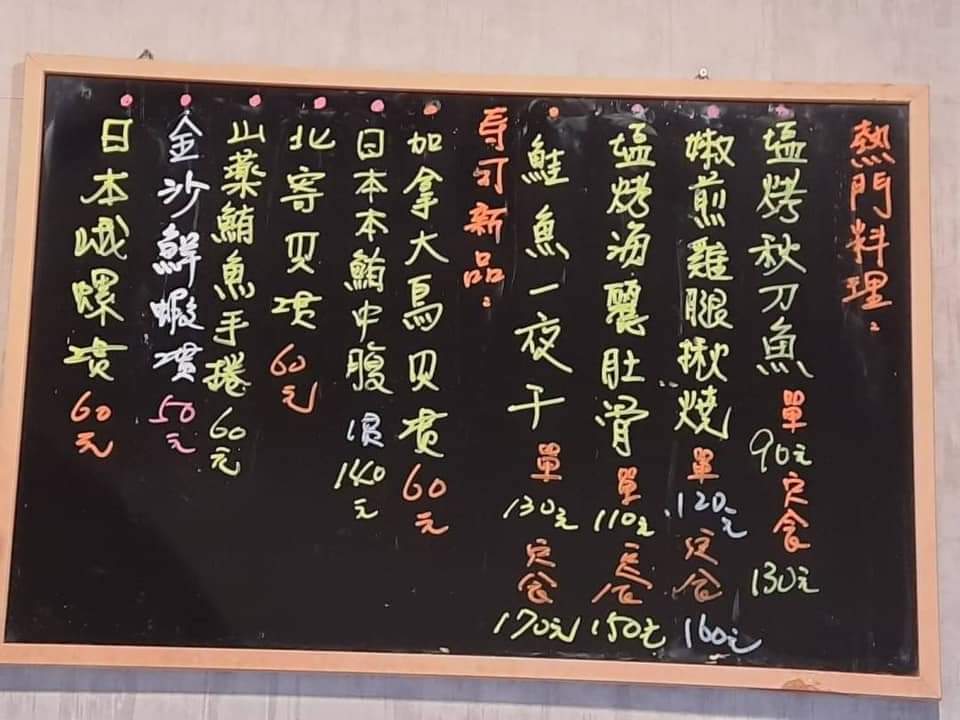 熱門料理：
塩烤秋刀魚 單90元 定食130元
嫩煎雞腿揪燒 單120元 定食160元
塩烤海鸝肚骨 單110元 定食150元
鮭魚一夜干 單130元 定食170元
寿司新品：
加拿大鳥贝貫 60元
日本本鮪中腹 1貫 140元
北寄贝貫 60元
山薬鮪魚手捲 60元
金沙鮮蝦貫 50元
日本峨螺貫 60元